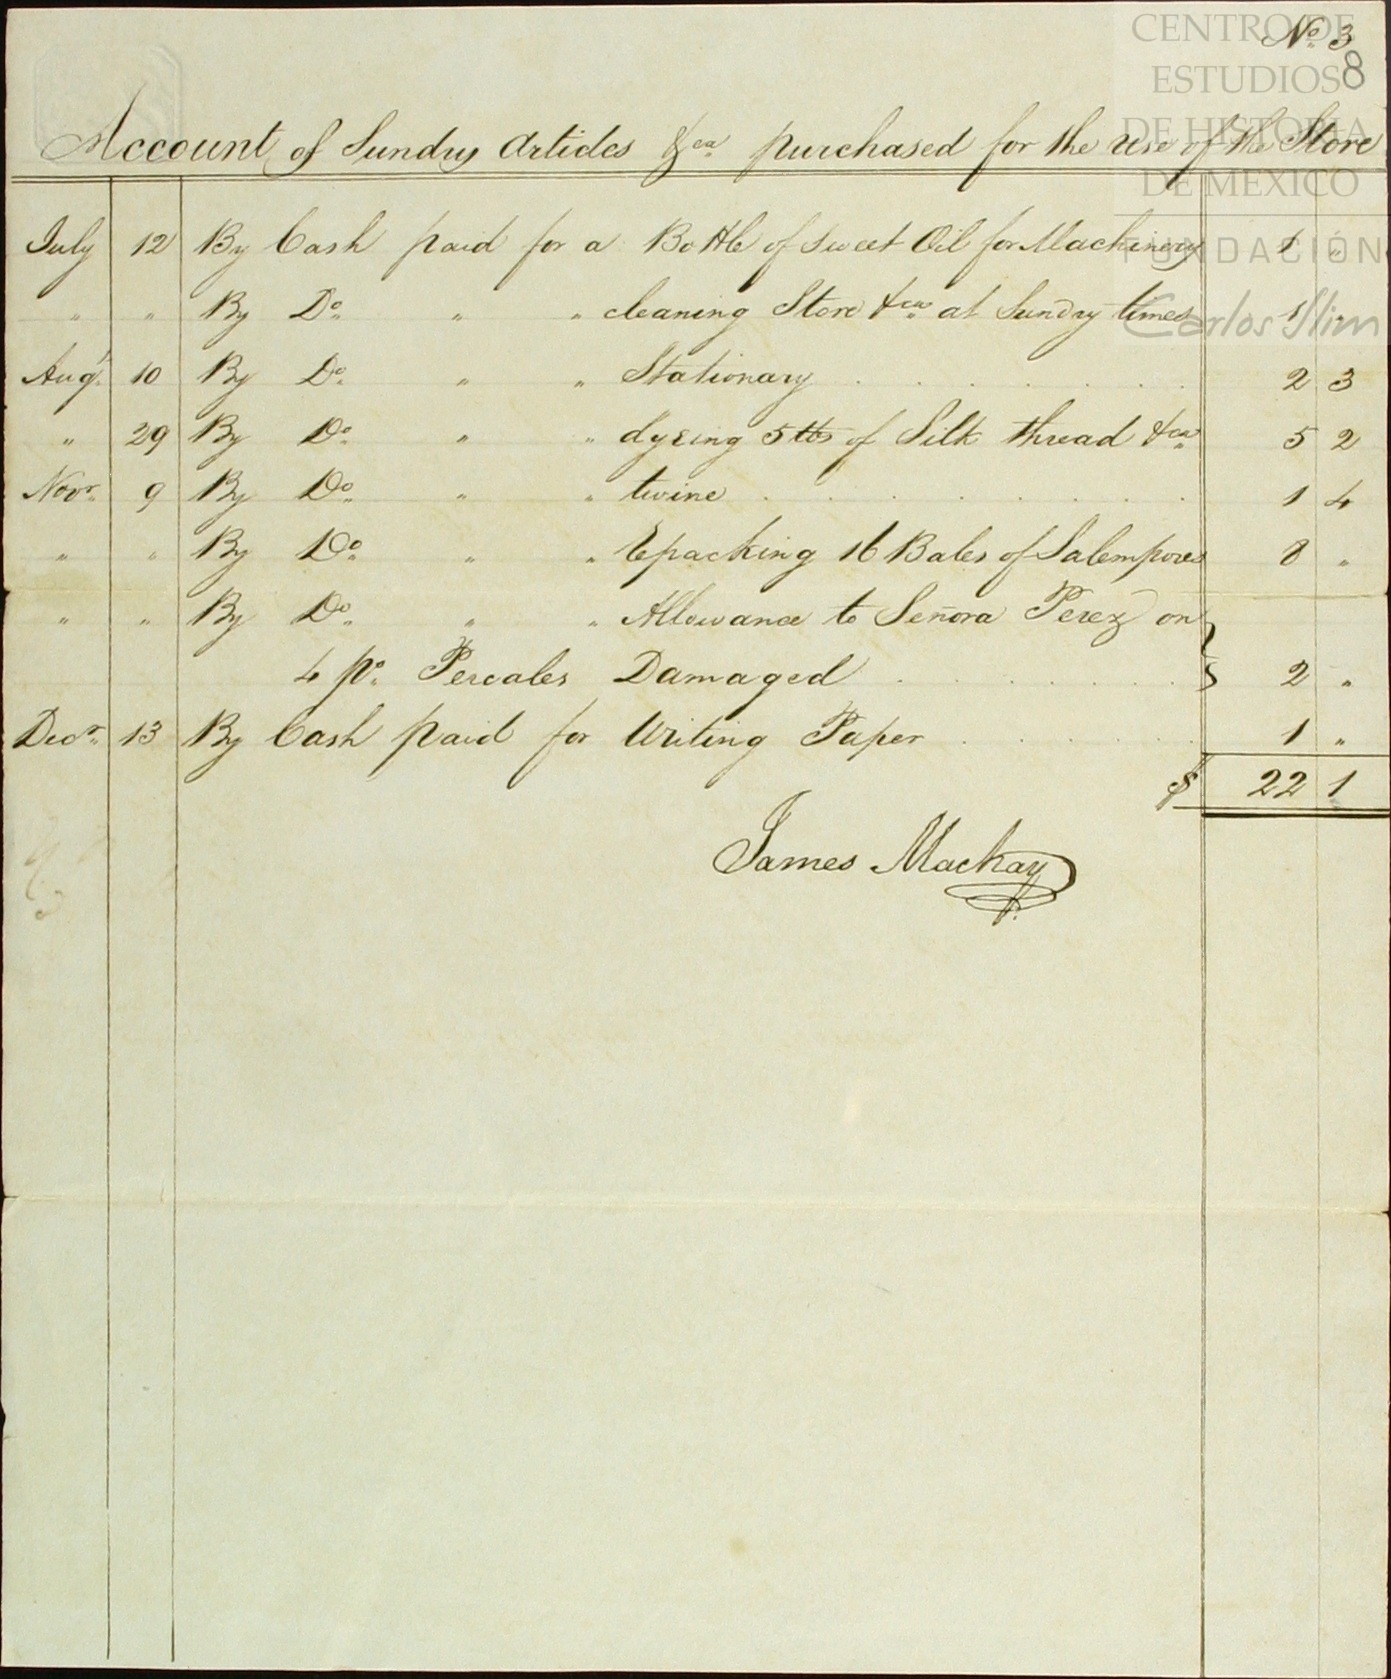 CENTRO DE
ESTUDIOS
DE HISTORIA
DE MEXICO
FUNDACIÓN
Carlos Slim
No. 3
8
Account of Sundry Articles &ca purchased for the use of the Store
July 12 By Cash paid for a Bottle of Sweet Oil for Machinery 1 "
" " By Do. " " cleaning Store &ca at Sundry times 1 "
Augt. 10 By Do. " " Stationary 2 3
" 29 By Do. " " dyeing 5 lbs of Silk thread &ca 5 2
Novr. 9 By Do. " " twine 1 4
" " By Do. " " Repacking 16 Bales of Salempores 8 "
" " By Do. " " Allowance to Señora Perez on
4 ps. Percales Damaged 2 "
Decr. 13 By Cash paid for Writing Paper 1 "
$ 22 1
James Mackay